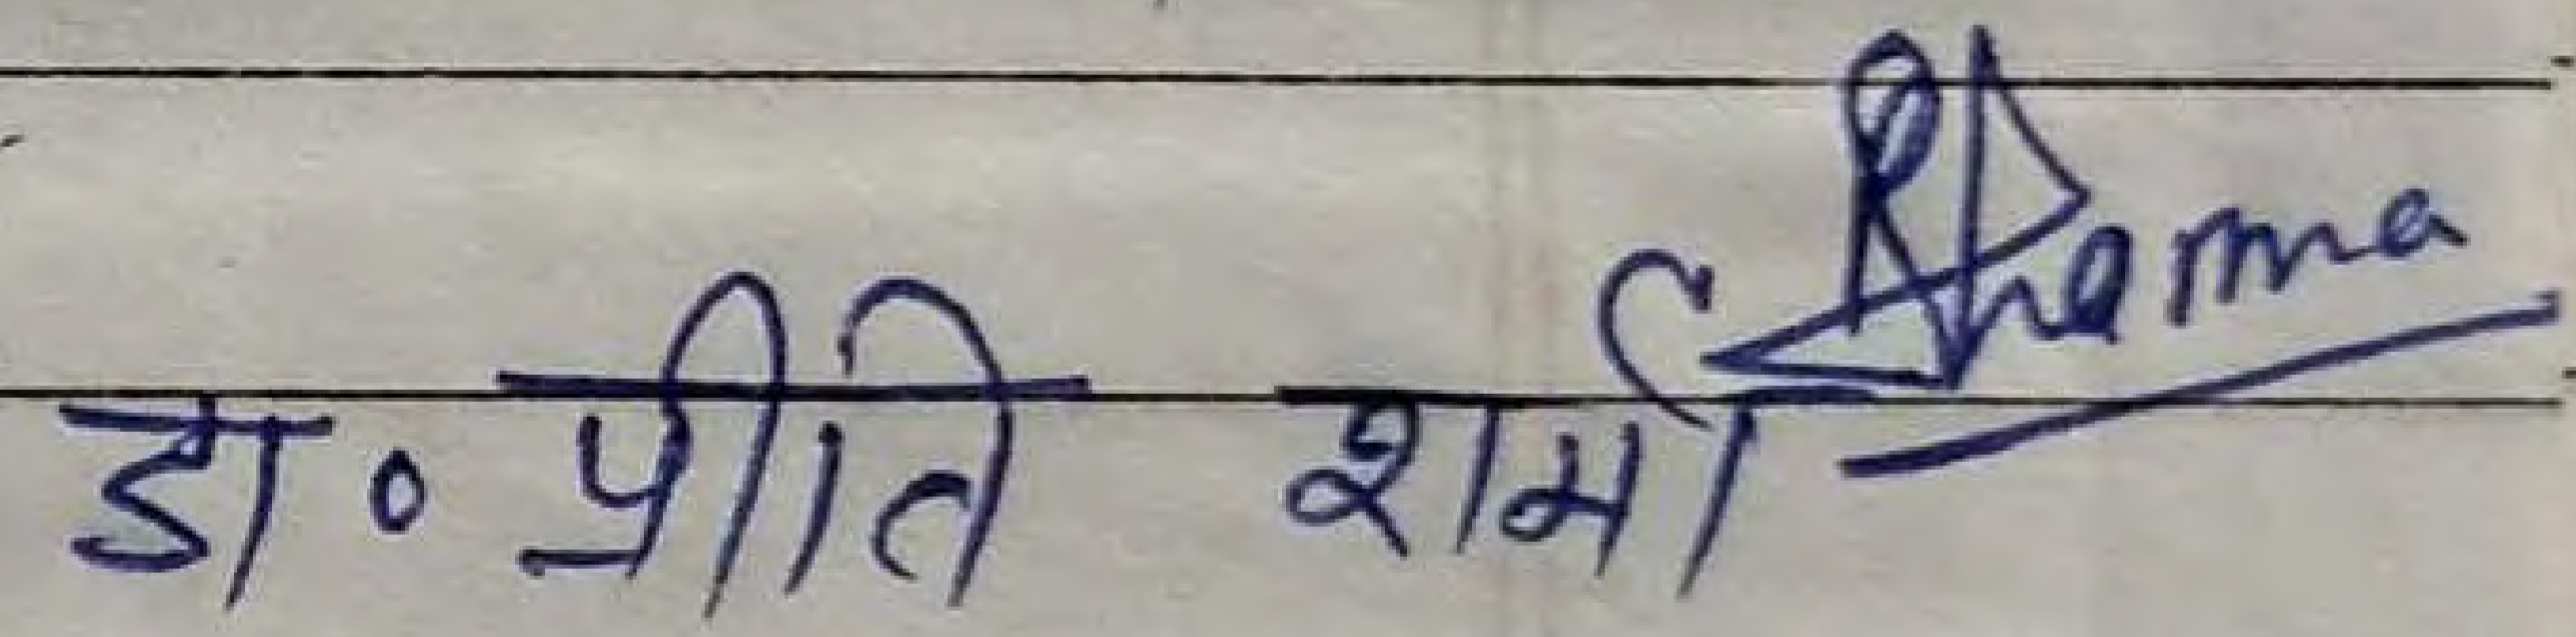 डा० प्रीति शर्मा
Sharma